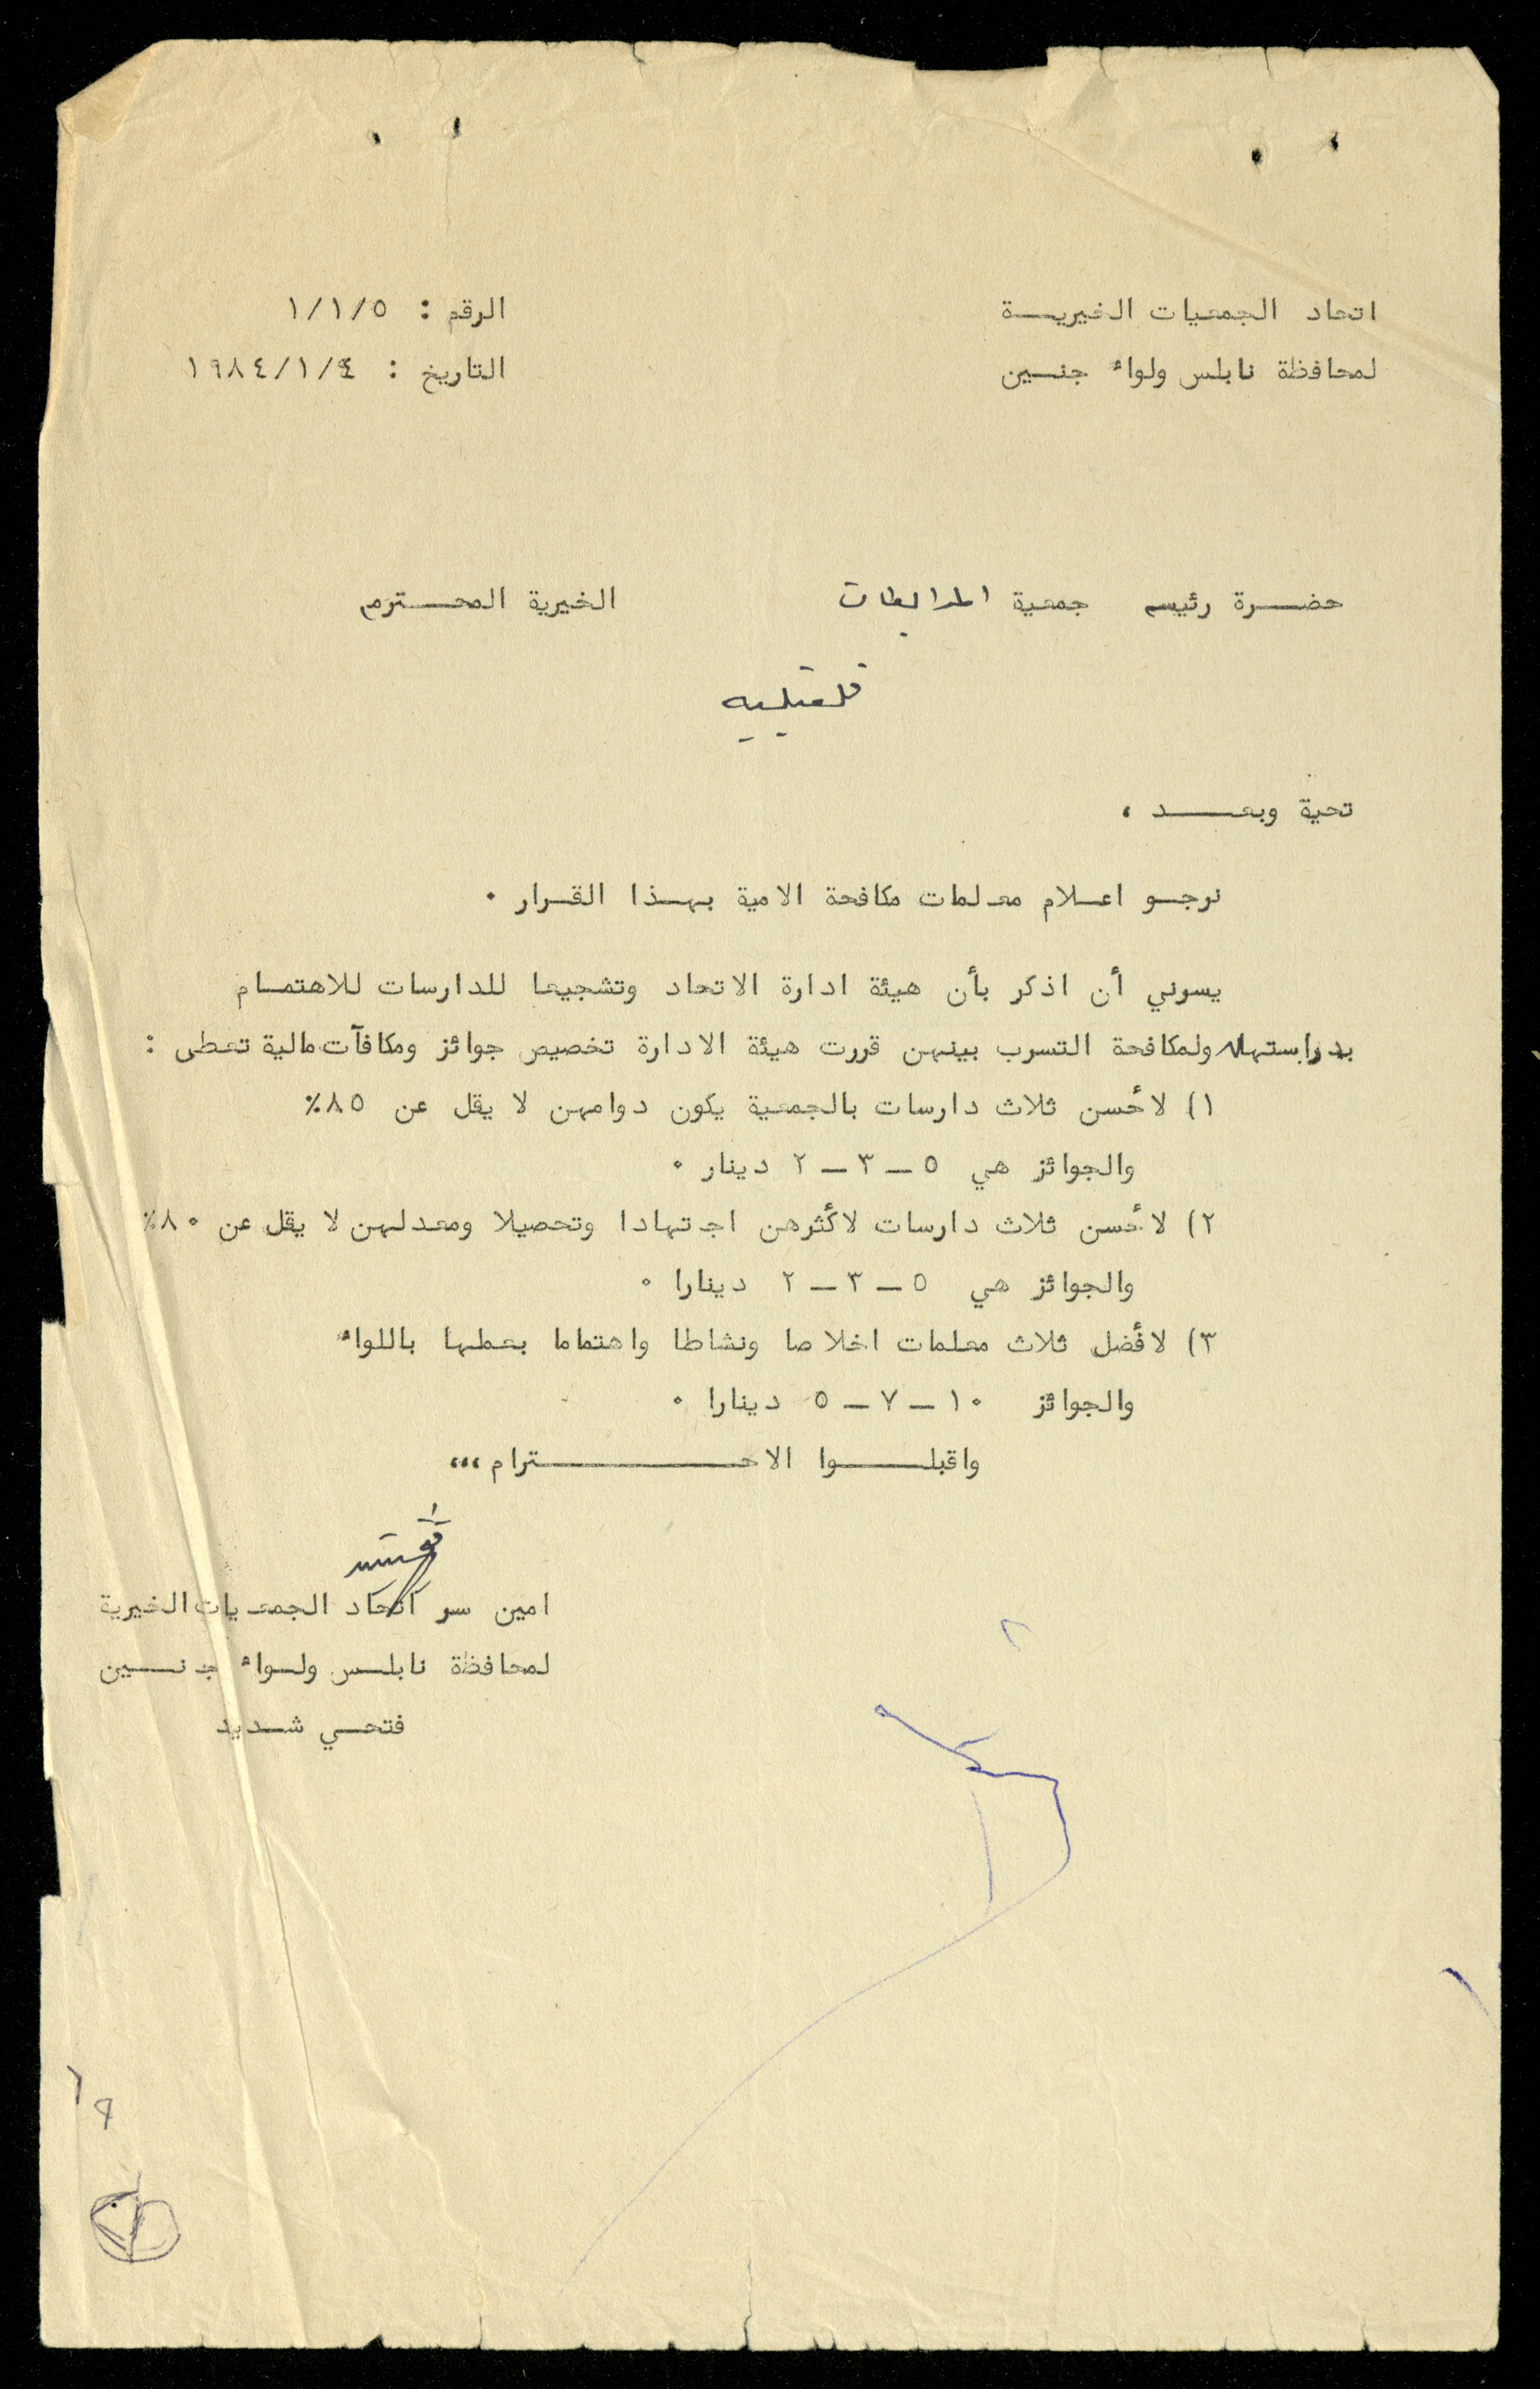 اتحاد الجمعيات الخيريــة
الرقم : ١/١/٥
لمحافظة نابلس ولواء جنـين
التاريخ : ١٩٨٤/١/٤
حضـرة رئيسه جمعية المرابطات الخيرية المحـترم
قلقيليه
تحية وبعــد ،
نرجـو اعـلام معلمات مكافحة الامية بهـذا القـرار ٠
يسرني أن اذكر بأن هيئة ادارة الاتحاد وتشجيعا للدارسات للاهتمـام
بدراستها ولمكافحة التسرب بينهن قررت هيئة الادارة تخصيص جوائز ومكافآت مالية تعطى :
١) لأحسن ثلاث دارسات بالجمعية يكون دوامهن لا يقل عن ٨٥٪
والجوائز هي ٥ ــ ٣ ــ ٢ دينار ٠
٢) لأحسن ثلاث دارسات لأكثرهن اجتهادا وتحصيلا ومعدلهن لا يقل عن ٨٠٪
والجوائز هي ٥ ــ ٣ ــ ٢ دينارا ٠
٣) لأفضل ثلاث معلمات اخلاصا ونشاطا واهتماما بعملها باللواء
والجوائز ١٠ ــ ٧ ــ ٥ دينارا ٠
واقبلـــوا الاحـــــترام ،،،
امين سر اتحاد الجمعيات الخيرية
لمحافظة نابلـس ولـواء جنــين
فتحـي شـديد